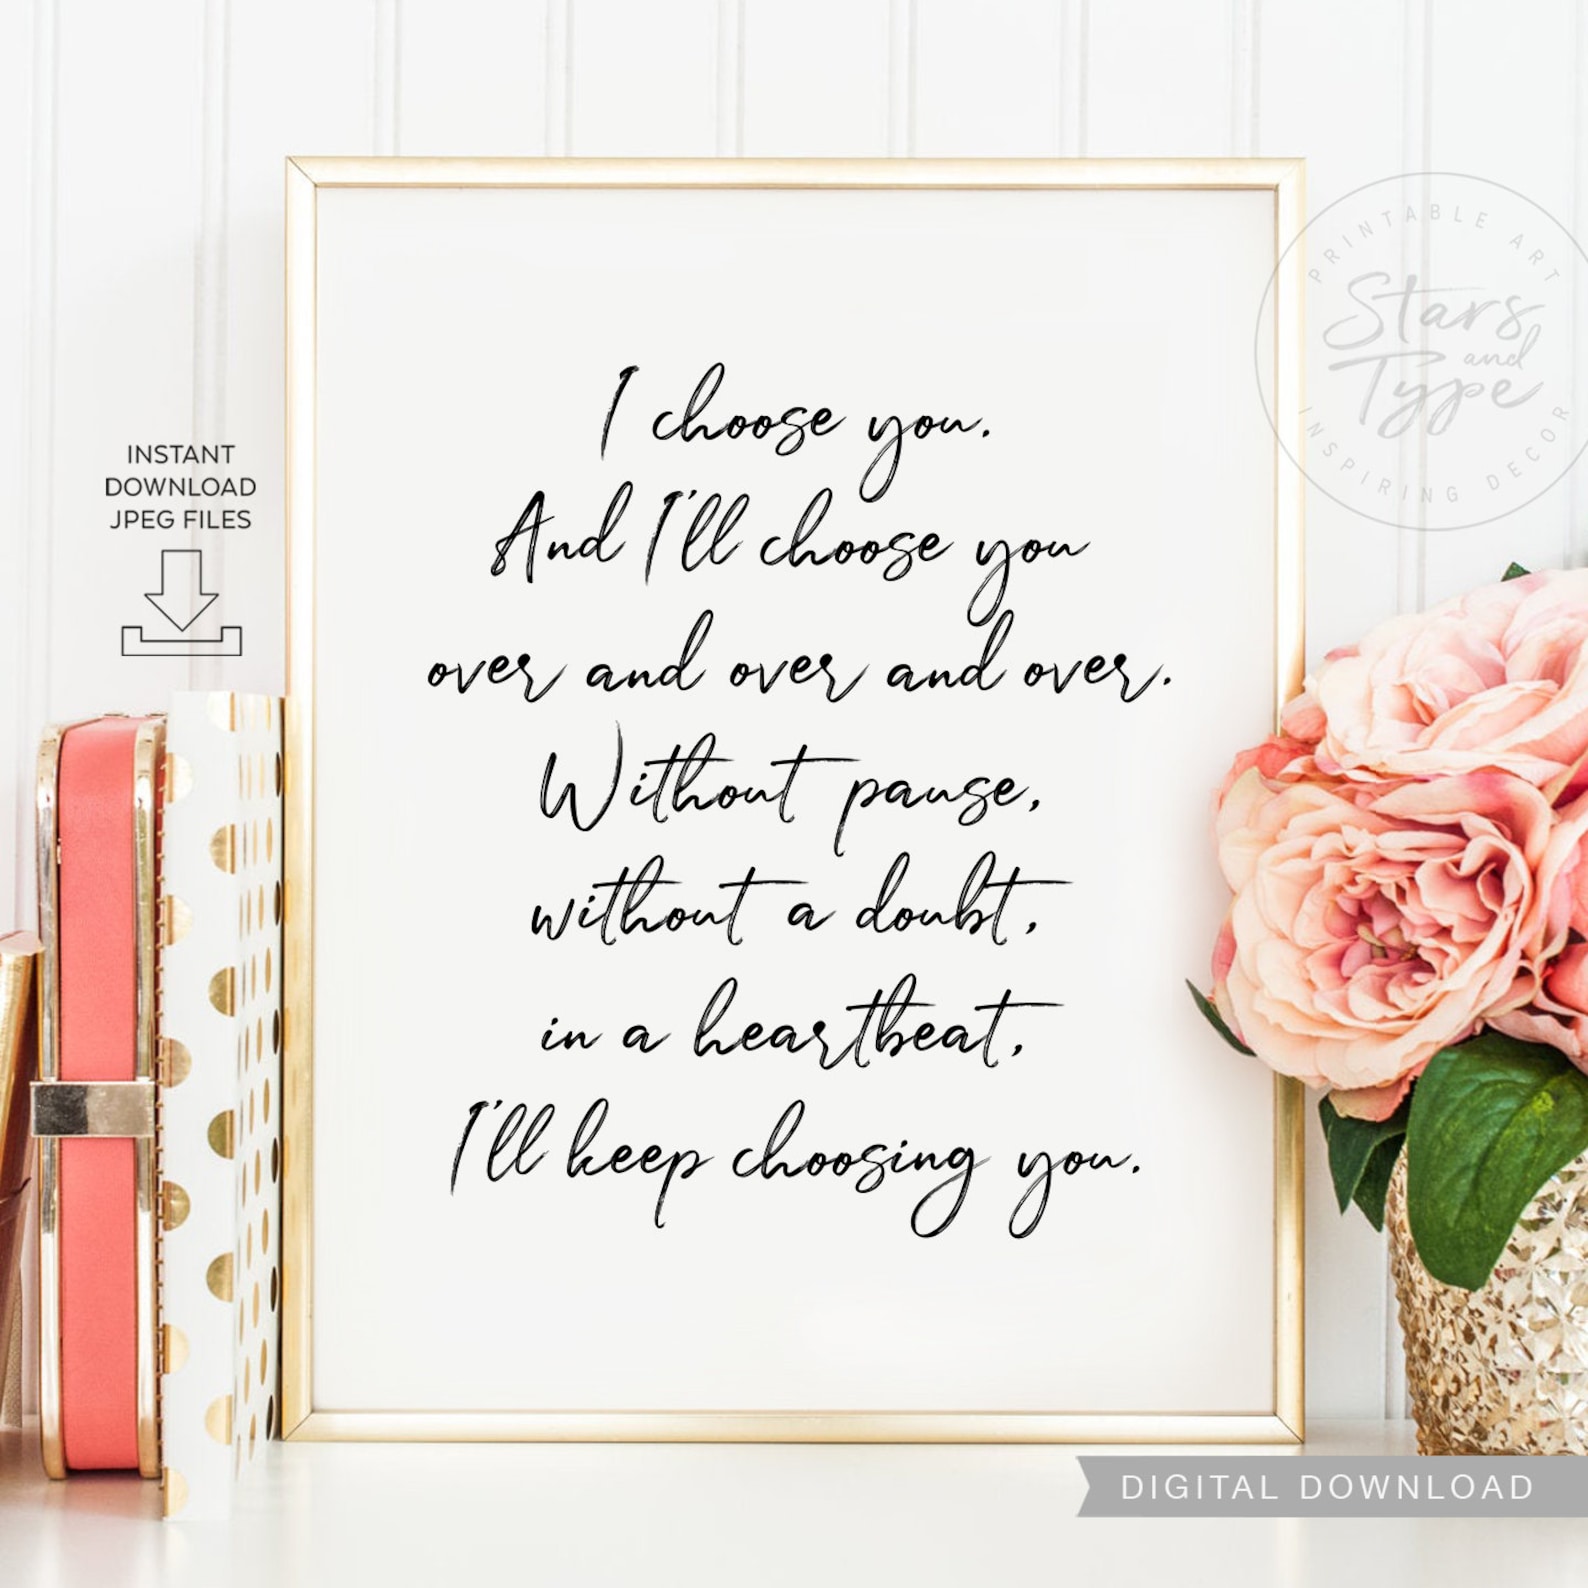 I choose you.
And I'll choose you
over and over and over.
Without pause,
without a doubt,
in a heartbeat,
I'll keep choosing you.
INSTANT
DOWNLOAD
JPEG FILES
PRINTABLE ART
Stars
and
Type
INSPIRING DECOR
DIGITAL DOWNLOAD